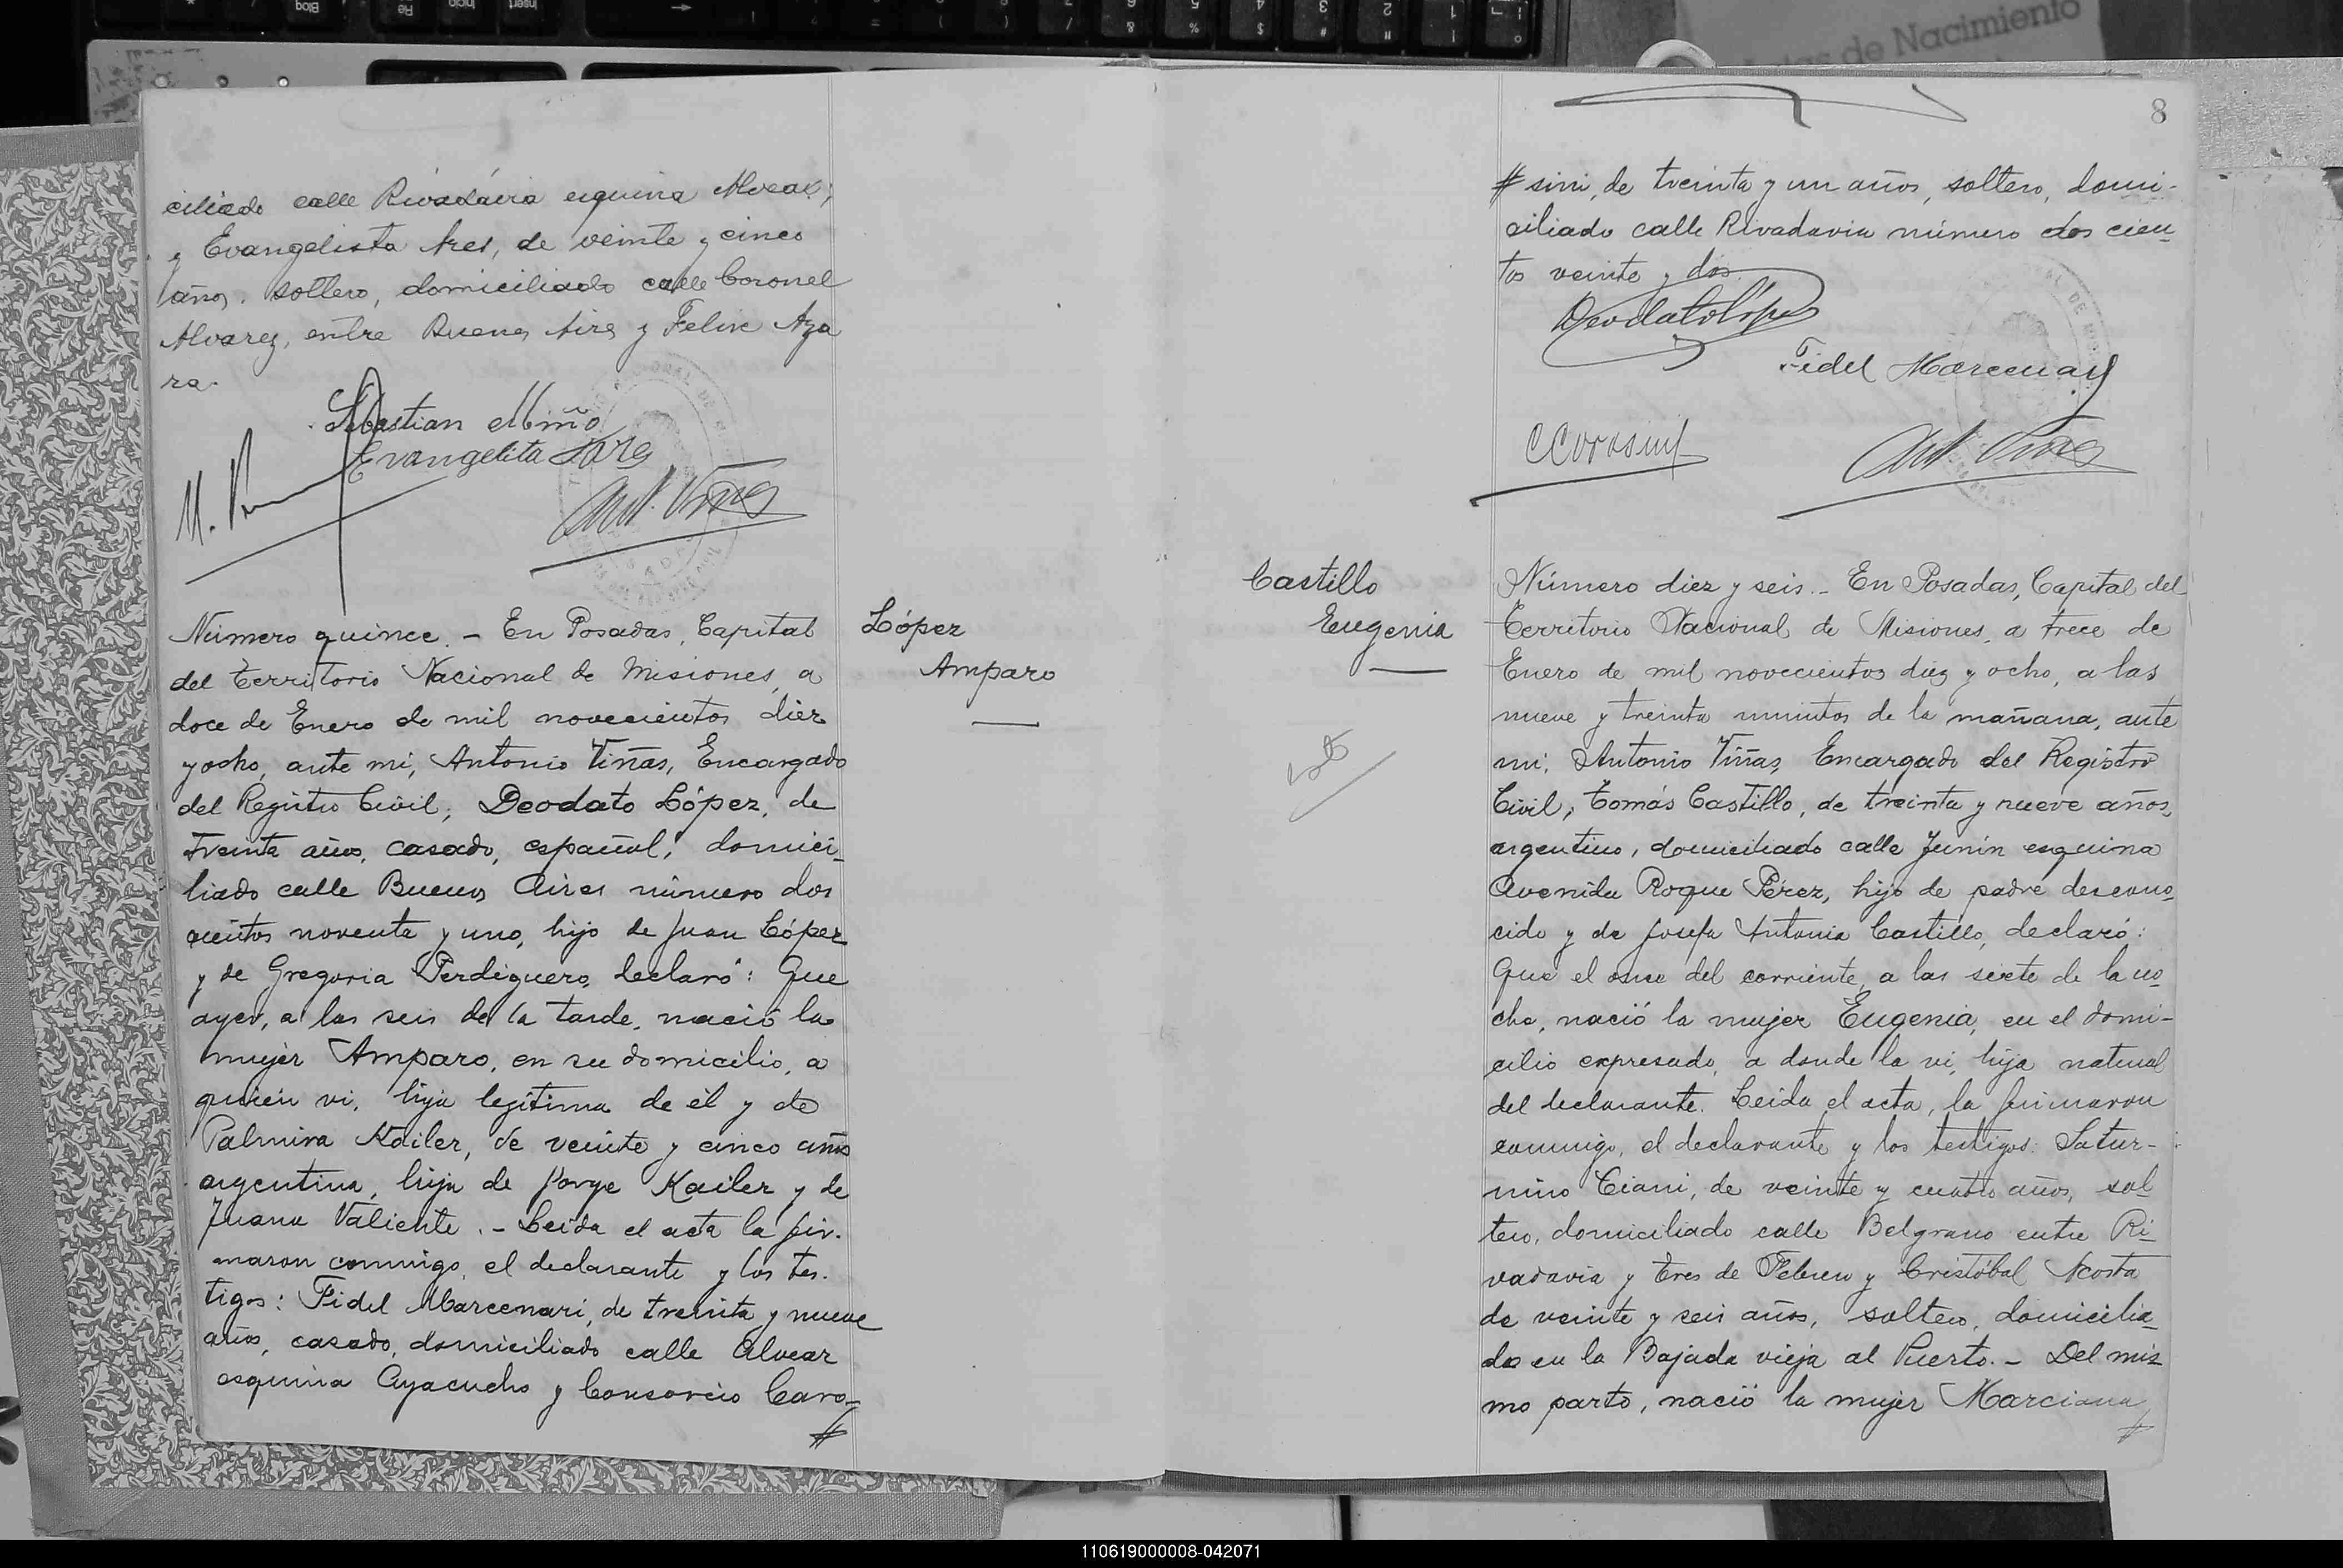 ciliado calle Rivadavia esquina
y Evangelista Ares, de veinte y cinco
años, soltero, domiciliado calle Coronel
Alvarez, entre Buenos Aires y Felix Aza
ra.
Sebastian Miño
Evangelita Ares
Ant. Viñas
Número quince. - En Posadas, Capital
del Territorio Nacional de Misiones, a
doce de Enero de mil novecientos diez
y ocho, ante mi, Antonio Viñas, Encargado
del Registro Civil; Deodato López, de
treinta años, casado, español, domici_
liado calle Buenos Aires número dos
cientos noventa y uno, hijo de Juan López
y de Gregoria Perdiguero, declaró: Que
ayer, a las seis de la tarde, nació la
mujer Amparo, en su domicilio, a
quien vi, hija legítima de él y de
Palmira Kailer, de veinte y cinco años
argentina, hija de Jorge Kailer y de
Juana Valiente. - Leida el acta la fir-
maron conmigo, el declarante y los tes-
tigos: Fidel Marcenari, de treinta y nueve
años, casado, domiciliado calle Alvear
esquina Ayacucho y Consorcio Caro_
#
López
Amparo
8
# sini, de treinta y un años, soltero, domi-
ciliado calle Rivadavia número dos cien_
tos veinte y dos.
Deodato López
Fidel Marcenari
C Corosini
Ant. Viñas
Castillo
Eugenia
Número diez y seis. - En Posadas, Capital del
Territorio Nacional de Misiones, a trece de
Enero de mil novecientos diez y ocho, a las
nueve y treinta minutos de la mañana, ante
mi, Antonio Viñas, Encargado del Registro
Civil, Tomás Castillo, de treinta y nueve años,
argentino, domiciliado calle Junín esquina
Avenida Roque Pérez, hijo de padre descono_
cido y de Josefa Antonia Castillo, declaró:
Que el once del corriente, a las siete de la no_
che, nació la mujer Eugenia, en el domi-
cilio expresado, a donde la vi, hija natural
del declarante. Leida el acta, la firmaron
conmigo, el declarante y los testigos: Satur-
nino Ciani, de veinte y cuatro años, sol_
tero, domiciliado calle Belgrano entre Ri_
vadavia y Tres de Febrero y Cristóbal Acosta
de veinte y seis años, soltero, domicilia_
do en la Bajada vieja al Puerto. - Del mis_
mo parto, nació la mujer Marciana
#
de Nacimiento
110619000008-042071